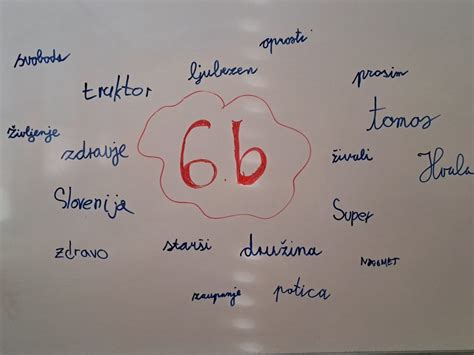 oprosti
svoboda
ljubezen
prosim
traktor
tomos
življenje
6.b
zdravje
živali
Hvala
Slovenija
Super
starši
družina
zdravo
NOGOMET
zaupanje
potica